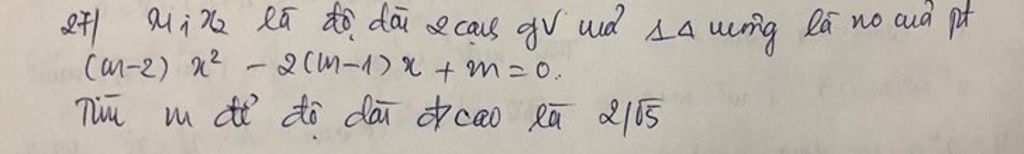 27/ x₁; x₂ là độ dài 2 cạnh gV của 1Δ vuông là no của pt
(m-2) x² - 2(m-1)x + m = 0.
Tìm m để độ dài đ cao là 2/√5